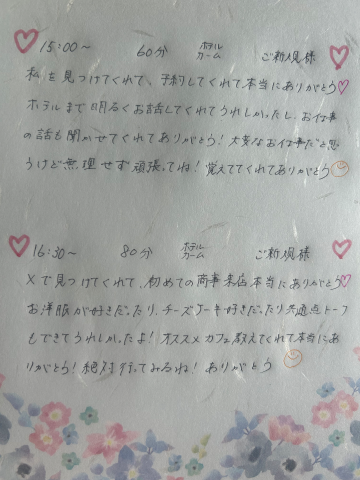 15:00～ 60分 ホテル カーム ご新規様
私を見つけてくれて、予約してくれて本当にありがとう♡
ホテルまで明るくお話してくれてうれしかったし、お仕事
の話も聞かせてくれてありがとう！大変なお仕事だと思
うけど無理せず頑張ってね！覚えててくれてありがとう
16:30～ 80分 ホテル カーム ご新規様
Xで見つけてくれて、初めての 来店本当にありがとう♡
お洋服が好きだったり、チーズケーキ好きだったり共通点トーク
もできてうれしかったよ！オススメカフェ教えてくれて本当にあ
りがとう！絶対行ってみるね！ありがとう